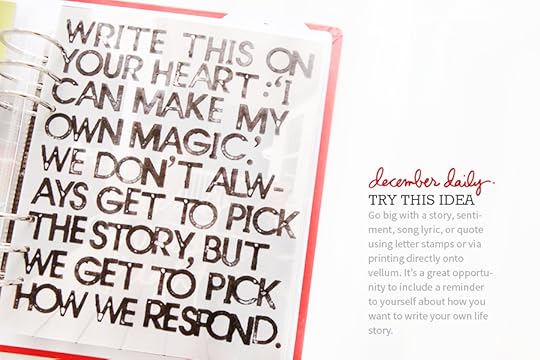 WRITE THIS ON
YOUR HEART: 'I
CAN MAKE MY
OWN MAGIC.'
WE DON'T ALW-
AYS GET TO PICK
THE STORY, BUT
WE GET TO PICK
HOW WE RESPOND.
december daily.
TRY THIS IDEA
Go big with a story, senti-
ment, song lyric, or quote
using letter stamps or via
printing directly onto
vellum. It's a great opportu-
nity to include a reminder
to yourself about how you
want to write your own life
story.